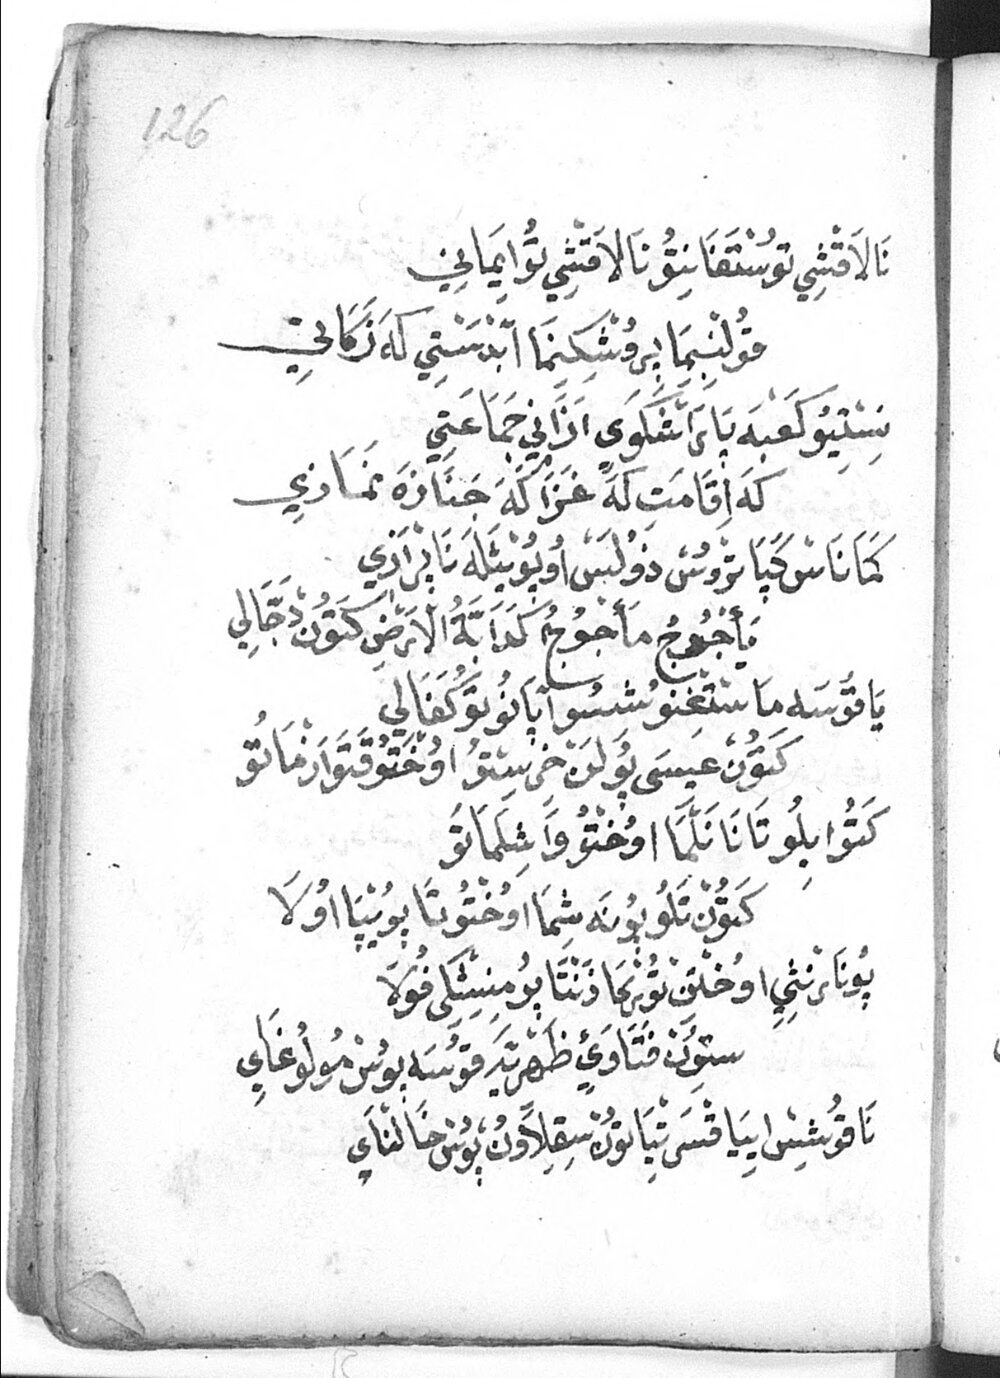 126
نَالَاقْشِي تُوسْتَفَانِتُو نَالَاقْشِي تُو اِيمَانِي
قُولْنِيمَا بِرْوُشْكِنِمَا آبْدَسْتِي كَهْ زَكَاتِي
سِتِيُو كَعْبَه پَارَاشْكَوِي اَذَانِي جَمَاعَتِي
كَهْ اِقَامَتِ كَهْ غَزَا كَهْ جَنَازَه نَمَازِي
كَمَانَاسْ كَپَاتْرُوسْ ذَوُلْپَسْ اُوپُوئِثَلَه نَاپْرَازِي
يَأْجُوجُ مَأْجُوجُ كَدَابَّةُ الْاَرْضِ كَتُونْ دَجَّالِي
يَاقُوسَه مَاسْتَغْنُوسُشُوا پَانُوتُو كُفَالِي
كَتُونْ عِيسَى پُولَنْ خْرِسِتُو اوُخْتُو قَتَوَا اَرْمَاتُو
كَتُو اِبِلُو تَانَانَلَّمَا اوُخْتُو وَاشِلَمَاتُو
كَتُونْ تَلُوپُونَه شِمَا اوُخْتُونَا پُوئِيپَا اوُلَا
پُونَارْنِثِي اوُخْلَقْ تُوبْرَحَا ذَنْتَا پُومِنِسْثَكِى قُولَا
سْتُونْ فَتَاوَىٰ ظَهْرِيَّه قُوسَه پُوسْ مُولُوغَايِ
نَاقُوشِسْ اِبِيَاقْسَرْتِيَا تُونْ سِقِلَاوُنْ پُوسْ حَالْنَايِ